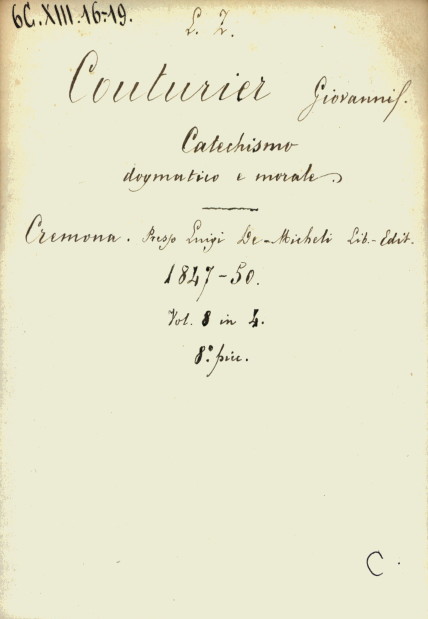 6C.XIII.16-19.
L. Z.
Couturier Giovanni.
Catechismo
dogmatico e morale.
Cremona. Presso Luigi De-Micheli Lib.-Edit.
1847-50.
Vol. 8 in 4.
8.° picc.
C.